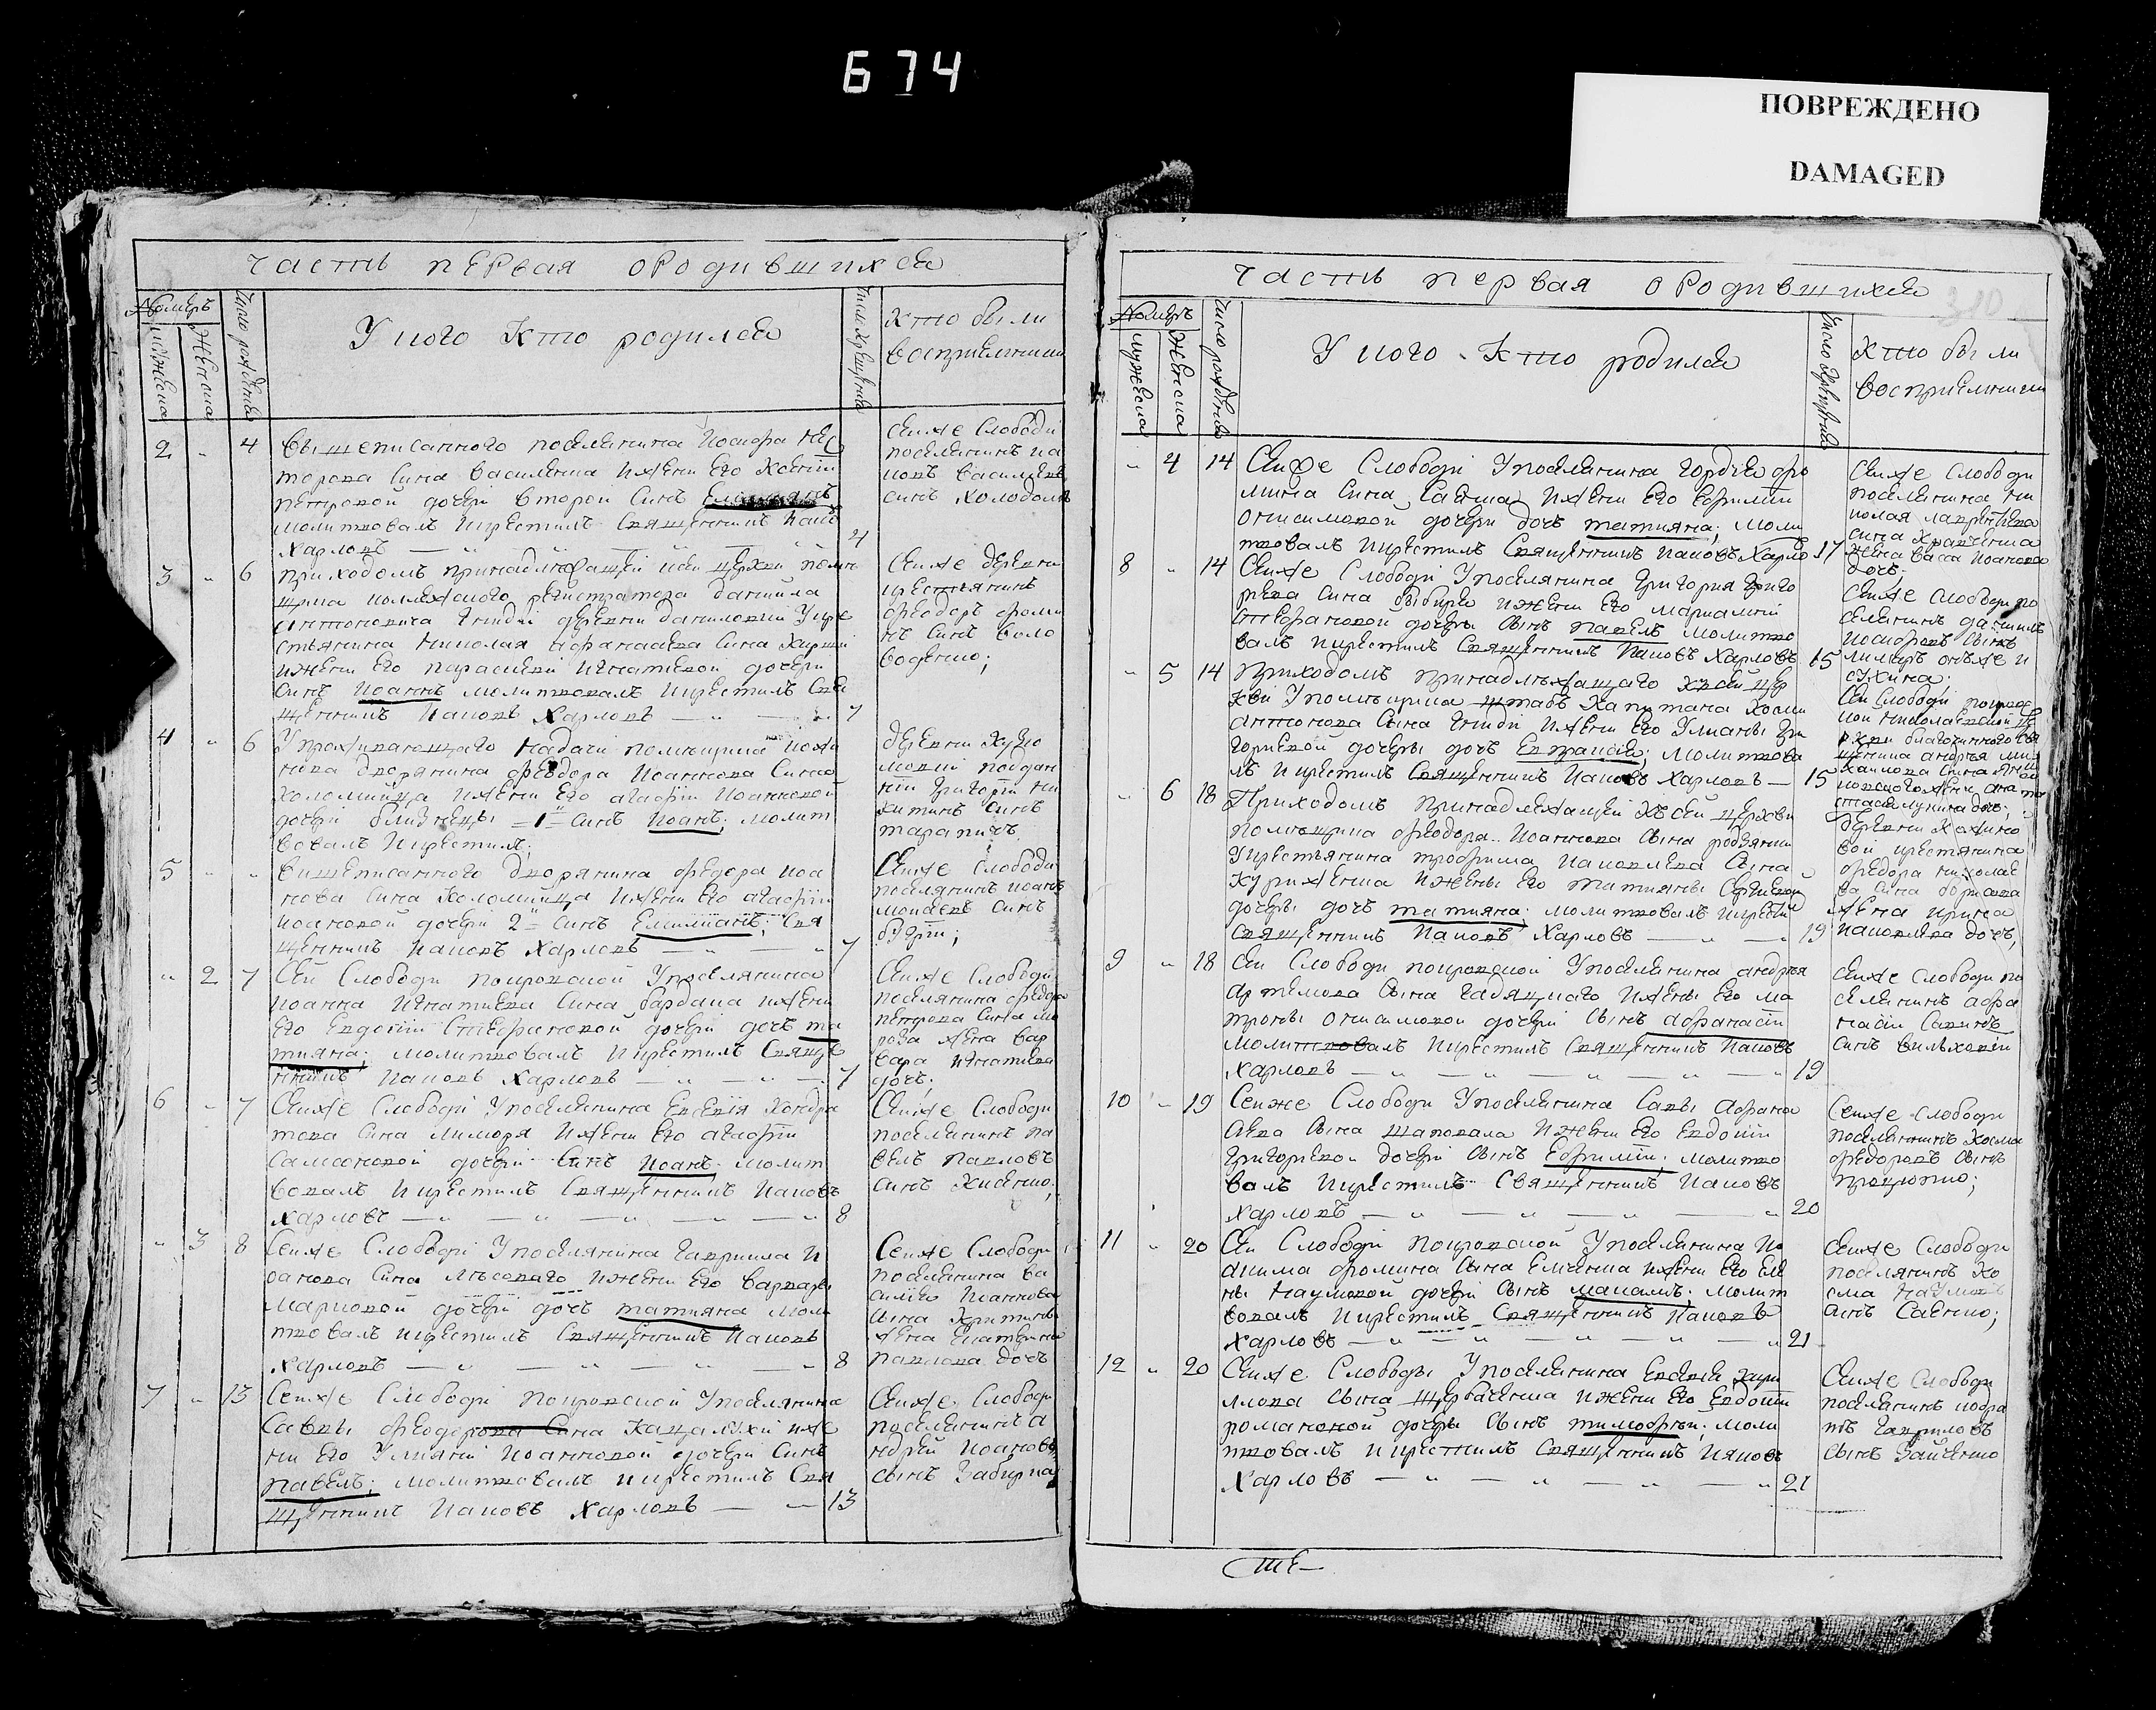 674
ПОВРЕЖДЕНО
DAMAGED
часть первая о родившихся
Номеръ
мужеска
женска
Число рожденія
У кого кто родился
Число крещенія
Кто были
воспріемники
2 " 4 вышеписанного поселянина Иосифа Нес
торова сина Василенка и жени его Ксенїи
петровой дочери второй синъ
молитвовалъ и крестилъ Священникъ Иаковъ
Харловъ 4
Сей же Слободи
поселянинъ Иа
ковъ Васильевъ
синъ Холодъ
3 " 6 приходомъ принадлежащей к сей церкви помѣ
щика коллежского регистратора Даниила
Антоновича Гнидї деревни Даниловки У кре
стьянина Николая Афанасиева сина
и жени его Параскеви Игнатиевой дочери
синъ Иоаннъ молитвовалъ и крестилъ Свя
щенникъ Иаковъ Харловъ 7
Сей же деревни
крестьянинъ
Феодоръ Фоми
нъ синъ Воло
воденко;
4 " 6 У проживающаго
дворянина Феодора Иоаннова сина
Коломийца и жени его Агафїи Иоанновой
дочери близнецы 1 синъ Иоанъ; молит
вовалъ и крестилъ;
деревни
поддан
нїй Григорїй Ни
китинъ синъ
5 " " вишеписанного дворянина Федора Иоа
нова сина Коломийца и жени его Агафїи
Иоановой дочери 2 синъ Емилианъ; Свя
щенникъ Иаковъ Харловъ 7
Сей же Слободи
поселянинъ Иоанъ
Моисеевъ синъ
" 2 7 Сей Слободи покровской У поселянина
Иоанна Игнатиева сина Бардака и жени
его Евдокїи Стефановой дочери дочъ та
тияна; молитвовалъ и крестилъ Свяще
нникъ Иаковъ Харловъ 7
Сей же Слободи
поселянина Федора
петрова сина Мо
роза жена Вар
вара Игнатиева
дочъ;
6 " 7 Сей же Слободї У поселянина Евсевїя Кондра
това сина Лимаря и жени его Агафїи
Самсоновой дочери синъ Иоанъ; молит
вовалъ и крестилъ Священникъ Иаковъ
Харловъ 8
Сей же Слободи
поселянинъ Па
велъ Павловъ
синъ Кисенко;
" 3 8 Сей же Слободї У поселянина Гаврилы И
оанова сина Лѣсоваго и жени его Варвары
Марковой дочери дочъ татияна моли
твовалъ и крестилъ Священникъ Иаковъ
Харловъ 8
Сей же Слободи
поселянина Ва
силїя Иоаннова
сына
жена Екатерина
Павлова дочъ
7 " 13 Сей же Слободї покровской У поселянина
Саввы Феодорова Сина Кацалухи и же
ни его Улиянї Иоанновой дочери синъ
павелъ; молитвовалъ и крестилъ Свя
щенникъ Иаковъ Харловъ 13
Сей же Слободи
поселянинъ А
ндрей Иоановъ
сынъ
часть первая о родившихся
310
Номеръ
мужеска
женска
Число рожденія
У кого кто родился
Число крещенія
Кто были
воспріемники
" 4 14 Сей же Слободї У поселянина Гордея Фо
мина сина Саенка и жени его Ефимїи
Онисимовой дочери дочъ татияна; моли
твовалъ и крестилъ Священникъ Иаковъ Харло 17
Сей же Слободи
поселянина Ни
колая Лаврентиева
сина Кравченка
жена Васса Иоанова
дочъ.
8 " 14 Сей же Слободї У поселянина Григория Григо
рева сина и жени его Мариамнї
Стефановой дочеры сынъ павелъ молитво
валъ и крестилъ Священникъ Иаковъ Харловъ 15
Сей же Слободи по
селянинъ Данїилъ
Иосифовъ сынъ
лимаръ онъ же и
Сухина.
" 5 14 Приходомъ принадлежащаго к сей цер
кви У помѣщика штабъ капитана Космы
Антонова сына Гнидї и жени его Улианы Гри
горїевой дочеры дочъ Евпраксия; молитвова
лъ и крестилъ Священникъ Иаковъ Харловъ 15
Сей Слободї покров
кой Николаевской це
ркви благочинного Свя
щенника Андрея Ми
хайлова сина
жена Ана
стасия дочъ;
" 6 18 Приходомъ принадлежащей къ сей церкви
помещика Феодора Иоаннова сына Родзянки
У крестьянина Трофима Иаковлева сына
Куриженка и жены его Татияны Сергиевой
дочеры дочъ татияна; молитвовалъ и крести
Священникъ Иаковъ Харловъ 19
деревни
вой крестянина
Федора Николае
ва сина Борисова
жена Ирина
Иаковлева дочъ;
9 " 18 Сей Слободи покровской У поселянина Андрея
Артемова сына Гадяцкаго и жены его Ма
троны Онисимовой дочерї сынъ Афанасїй
молитвовалъ и крестилъ Священникъ Иаковъ
Харловъ 19
Сей же Слободи по
селянинъ Афа
насїй Савинъ
синъ Вильховїй
10 " 19 Сей же Слободи У поселянина Савы Афана
сиева сына Шаповала и жени его Евдокїи
Григориевой дочерї сынъ Ефимїй; молитво
валъ и крестилъ Священникъ Иаковъ
Харловъ 20
Сей же Слободи
поселянинъ Косма
Федоровъ сынъ
11 " 20 Сей Слободї покровской У поселянина Ио
акима Фомина сына Емченка и жени его Еле
ны Наумовой дочерї сынъ ; молит
вовалъ и крестилъ Священникъ Иаковъ
Харловъ 21
Сей же Слободи
поселянинъ Ко
сма Наумовъ
синъ Савенко;
12 " 20 Сей же Слободы У поселянина Евсевия Кири
ллова сына Щербаченка и жени его Евдокїи
Романовой дочеры сынъ тимофѣй; моли
твовалъ и крестилъ Священникъ Иаковъ
Харловъ 21
Сей же Слободи
поселянинъ Кодра
тъ Гавриловъ
сынъ Зайченко